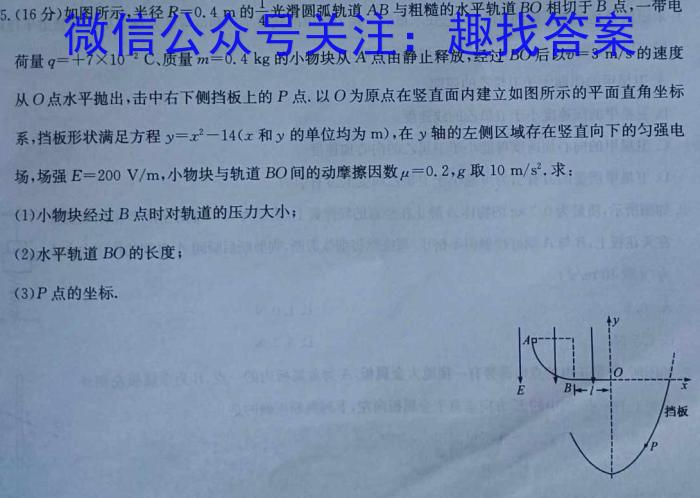 5.(16分)如图所示,半径R=0.4 m的1/4光滑圆弧轨道AB与粗糙的水平轨道BO相切于B点,一带电
微信公众号关注：趣找答案
荷量q=+7×10⁻² C、质量m=0.4 kg的小物块从A点由静止释放,经过BO后以v=3 m/s的速度
从O点水平抛出,击中右下侧挡板上的P点.以O为原点在竖直面内建立如图所示的平面直角坐标
系,挡板形状满足方程y=x²-14(x和y的单位均为m),在y轴的左侧区域存在竖直向下的匀强电
场,场强E=200 V/m,小物块与轨道BO间的动摩擦因数μ=0.2,g取10 m/s².求:
(1)小物块经过B点时对轨道的压力大小;
(2)水平轨道BO的长度;
(3)P点的坐标.
y
A
O
E
B
l
x
挡板
P